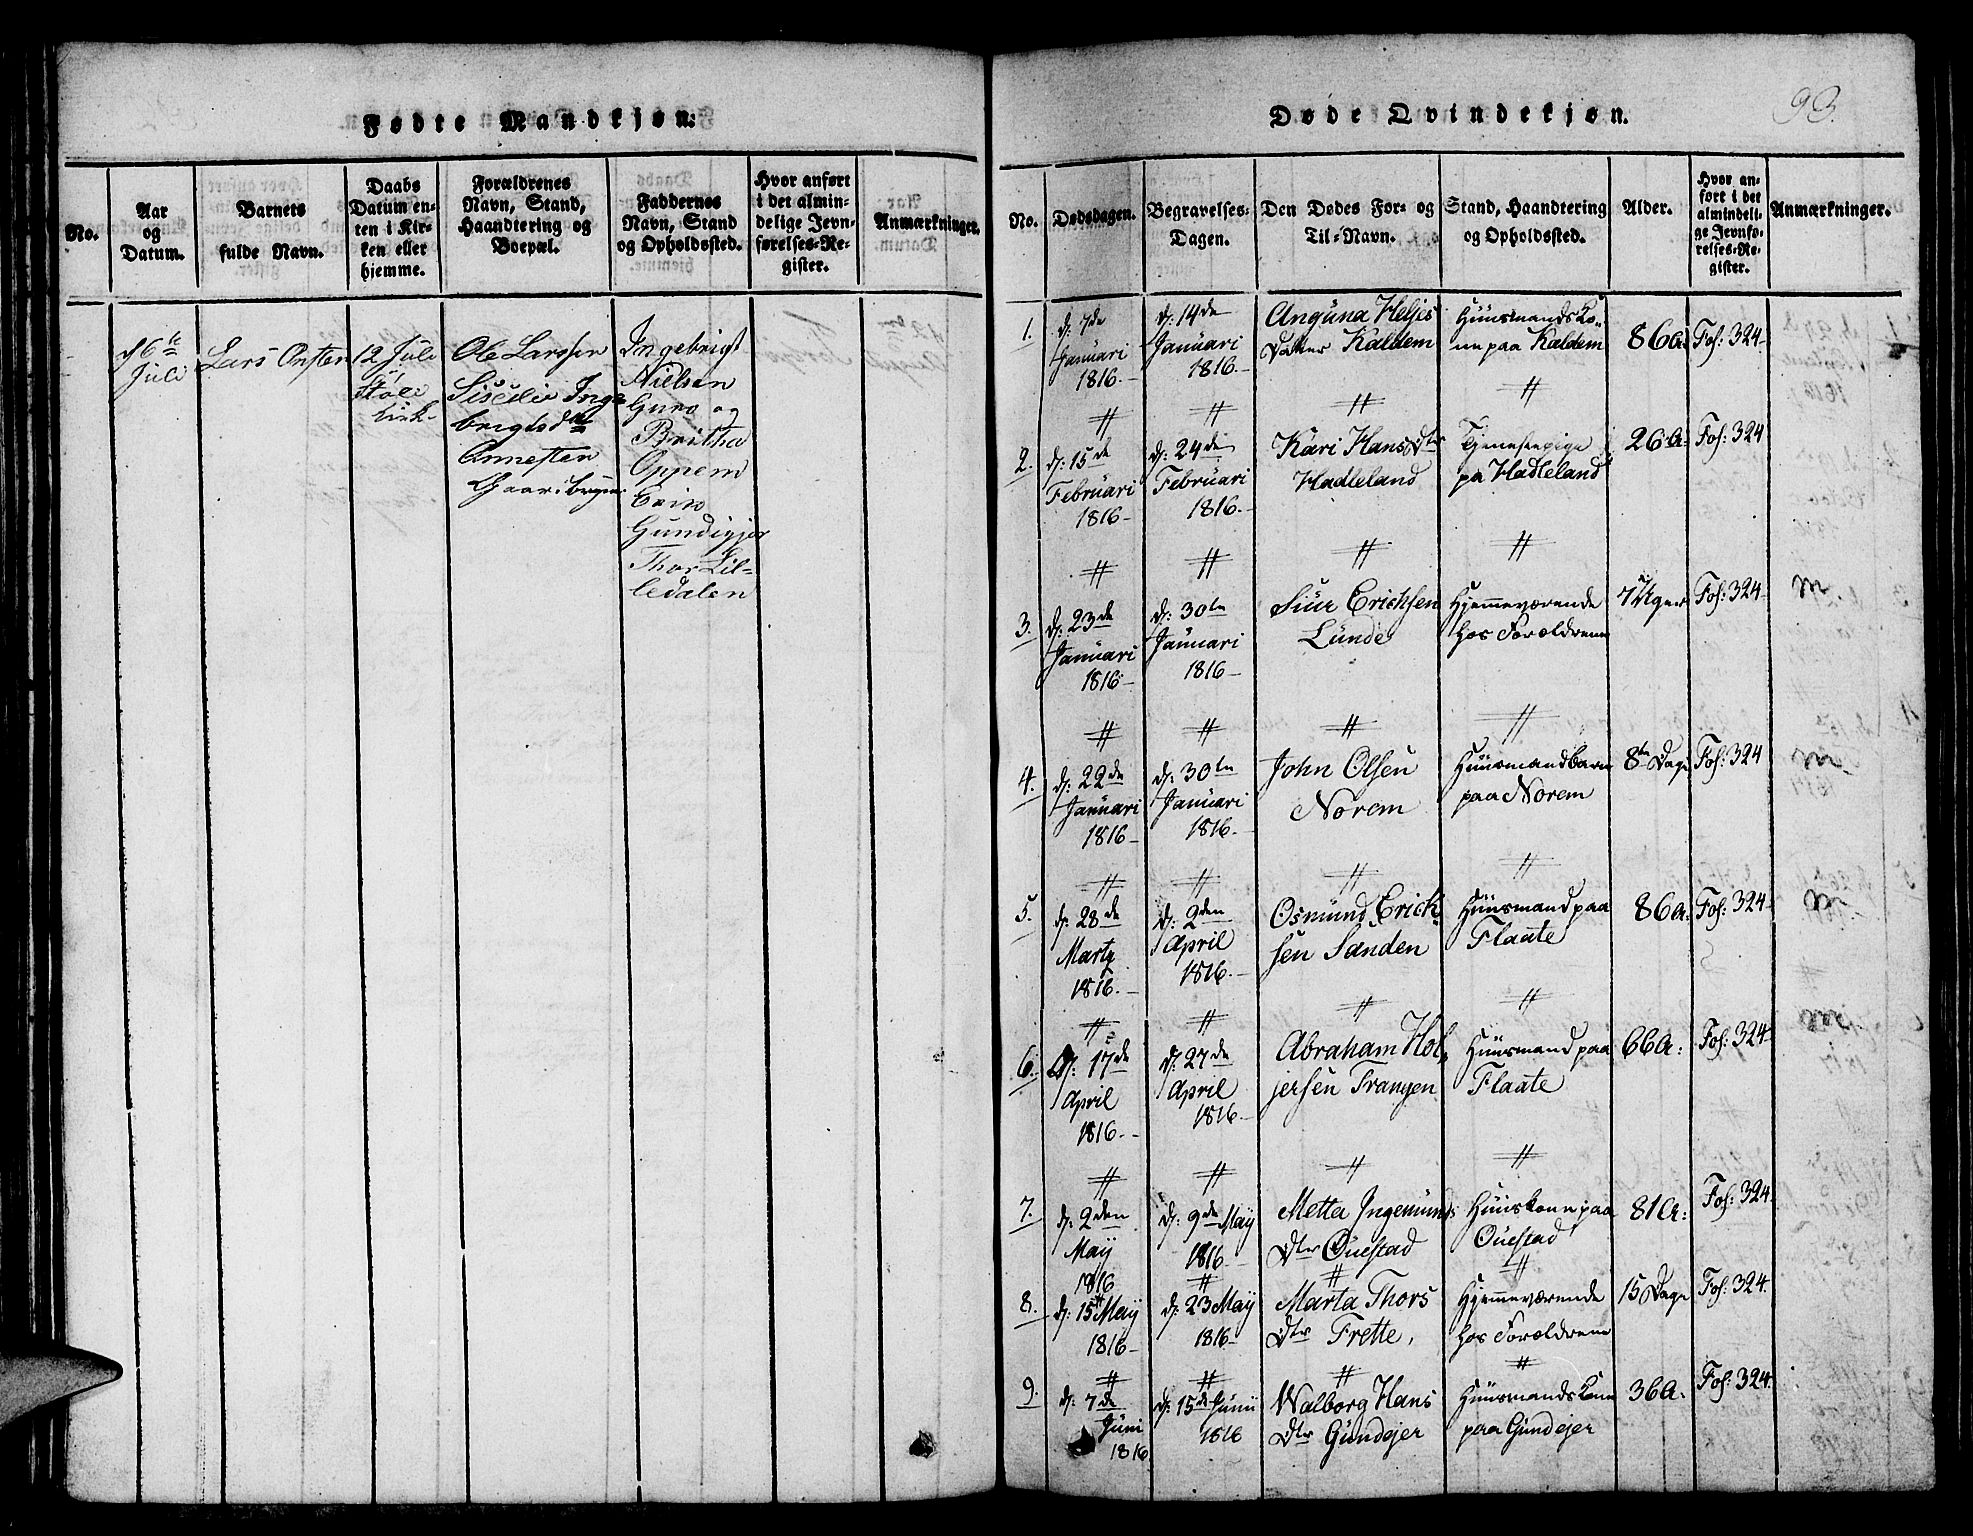 Fødte Mandkjøn.
No.
Aar
og
Datum.
Barnets
fulde Navn.
Daabs
Datum en-
ten i Kir-
ken eller
hjemme.
Forældrenes
Navn, Stand,
Haandtering og
Boepæl.
Faddernes
Navn, Stand
og Opholdssted.
Hvor anført
i det almin-
delige Jevn-
førelses-Re-
gister.
Anmærkninger.
Juli
Lars
12 Juli
Ole Larssen
Ingebrigt
Nielsen
Guro og
Britha
Oppem
Gundigjer
Thor Lil-
ledalen
Døde Qvindekjøn.
93.
No.
Dødsdagen.
Begravelses-
Dagen.
Den Dødes For- og
Til-Navn.
Stand, Haandtering
og Opholdssted.
Alder.
Hvor an-
ført i det
almindeli-
ge Jevnfø-
relses-Re-
gister.
Anmærkninger.
1.
d: 7de
Januari
1816.
d: 14de
Januari
1816.
Anguna Heljes
Datter Kaldem
Huusmands Ko-
ne paa Kaldem
86 A:
Fol: 324
2.
d: 15de
Februari
1816
d: 24de
Februari
1816.
Kari Hans Dtr
Hadleland
Tjenestepige
pa Hadleland
26 A:
Fol: 324
3.
d: 23de
Januari
1816
d: 30te
Januari
1816
Siur Ericksen
Lunde
Hjemmeværende
hos Forældrene
7 Uger
Fol: 324
m
4.
d: 22de
Januari
1816
d: 30te
Januari
1816.
John Olsen
Norem
Huusmandbarn
paa Norem
8te Dage
Fol: 324
m
5.
d: 28de
Martz
1816.
d: 2den
April
1816.
Osmund Erick
sen Sanden
Huusmand paa
Flaate
86 A:
Fol: 324
m
6.
d: 17de
April
1816.
d: 27de
April
1816.
Abraham Hol-
jersen Trangen
Huusmand paa
Flaate
66 A:
Fol: 324
m
7.
d: 2den
May
1816
d: 9de May
1816
Metta Ingemunds
Dtr Ouestad
Huuskone paa
Ouestad
81 A:
Fol: 324
8.
d: 15 May
1816
d: 23 May
1816
Marta Thors
Dtr Frette,
Hjemmeværende
hos Forældrene
15 Dage
Fol: 324.
9.
d: 7de
Juni
1816
d: 15de Junii
1816
Walborg Hans
Dtr Gundejer
Huusmands Kone
paa Gundejer
36 A.
Fol: 324.